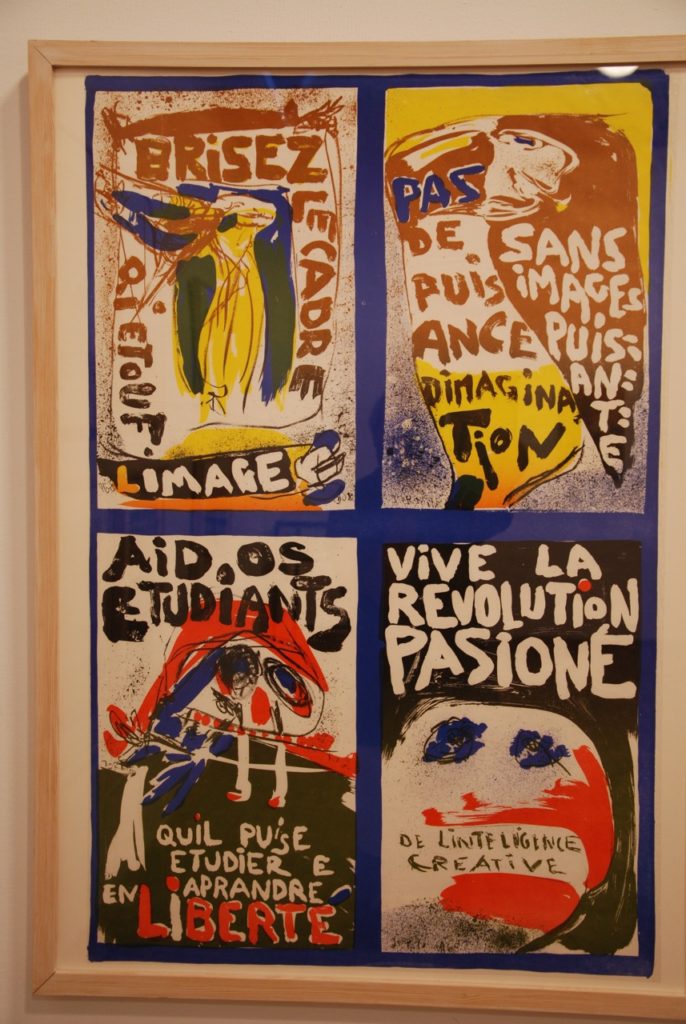 BRiSEZ
LE CADRE
QI ETOUF.
LIMAGE
PAS
DE
PUIS
ANCE
DIMAGINA
TION
SANS
IMAGES
PUIS:
AN:
TE
AID.OS
ETUDIANTS
QUIL PUiSE
ETUDIER E
EN APRANDRE
LiBERTÉ
ViVE LA
REVOLUTiON
PASIONÉ
DE L'INTELIGENCE
CREATIVE